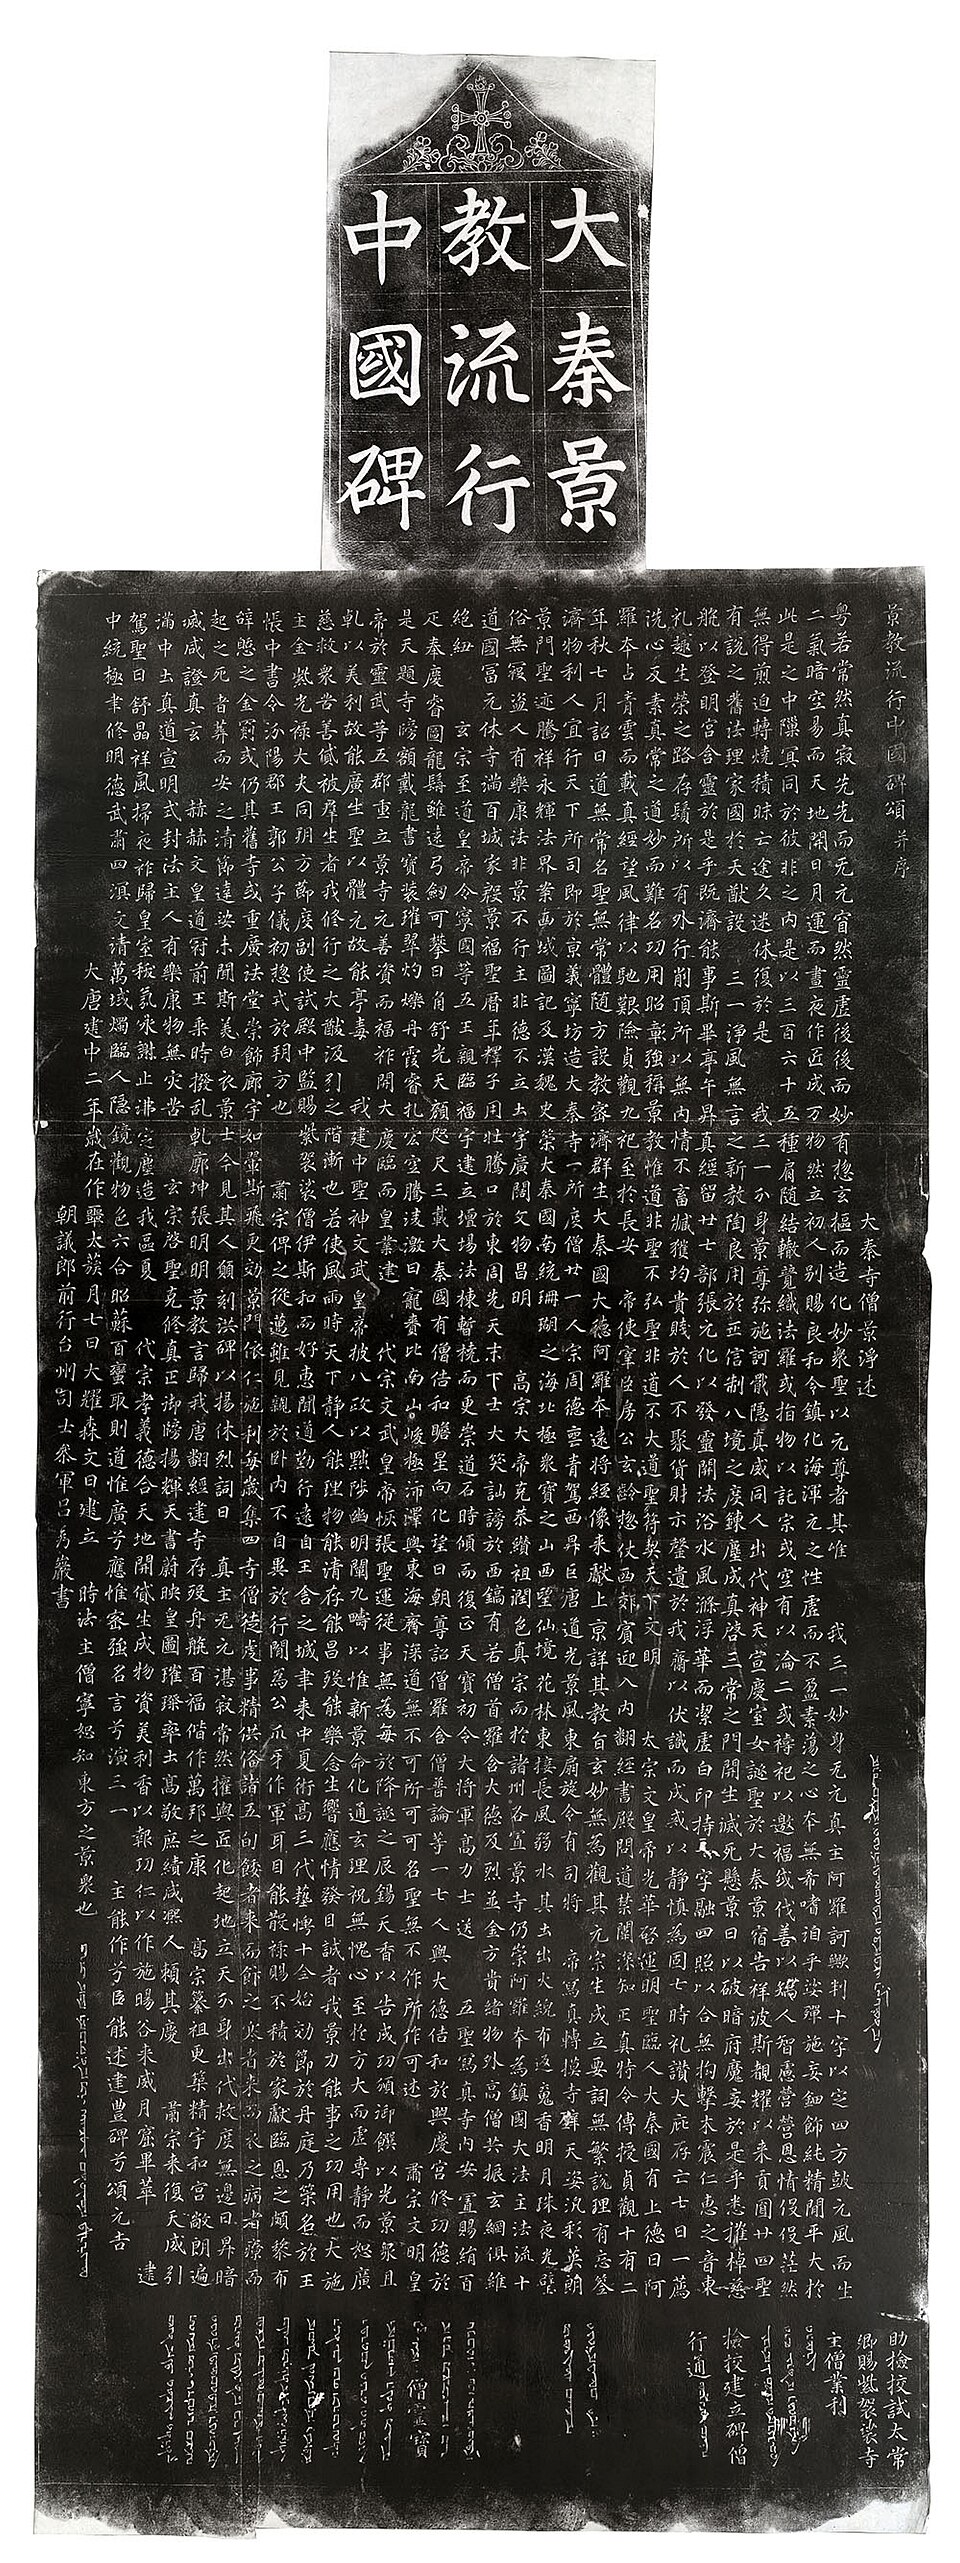 大秦景
教流行
中國碑
景教流行中國碑頌并序
大秦寺僧景淨述
粵若常然真寂先先而无元窅然靈虛後後而妙有惣玄樞而造化妙眾聖以元尊者其唯 我三一妙身无元真主阿羅訶歟判十字以定四方鼓元風而生
二氣暗空易而天地開日月運而晝夜作匠成万物然立初人別賜良和令鎮化海渾元之性虛而不盈素蕩之心本無希嗜洎乎娑殫施妄鈿飾純精閒平大於
此是之中隟冥同於彼非之內是以三百六十五種肩隨結轍競織法羅或指物以託宗或空有以淪二或禱祀以邀福或伐善以矯人智慮營營恩情役役茫然
無得煎迫轉燒積昧亡途久迷休復於是 我三一分身景尊弥施訶戢隱真威同人出代神天宣慶室女誕聖於大秦景宿告祥波斯覩耀以來貢圓廿四聖
有說之舊法理家國於大猷設 三一淨風無言之新教陶良用於正信制八境之度鍊塵成真啓三常之門開生滅死懸景日以破暗府魔妄於是乎悉摧棹慈
航以登明宮含靈於是乎既濟能事斯畢亭午昇真經留廿七部張元化以發靈關法浴水風滌浮華而潔虛白印持十字融四照以合無拘擊木震仁惠之音東
礼趣生榮之路存鬚所以有外行削頂所以無內情不畜臧獲均貴賤於人不聚貨財示罄遺於我齋以伏識而成戒以靜慎為固七時礼讚大庇存亡七日一薦
洗心反素真常之道妙而難名功用昭彰強稱景教惟道非聖不弘聖非道不大道聖符契天下文明 太宗文皇帝光華啓運明聖臨人大秦國有上德曰阿
羅本占青雲而載真經望風律以馳艱險貞觀九祀至於長安 帝使宰臣房公玄齡惣仗西郊賓迎入內翻經書殿問道禁闈深知正真特令傳授貞觀十有二
年秋七月詔曰道無常名聖無常體隨方設教密濟群生大秦國大德阿羅本遠將經像來獻上京詳其教旨玄妙無為觀其元宗生成立要詞無繁說理有忘筌
濟物利人宜行天下所司即於京義寧坊造大秦寺一所度僧廿一人宗周德喪青駕西昇巨唐道光景風東扇旋令有司將 帝寫真轉摸寺壁天姿汎彩英朗
景門聖迹騰祥永輝法界案西域圖記及漢魏史策大秦國南統珊瑚之海北極眾寶之山西望仙境花林東接長風弱水其土出火綄布返魂香明月珠夜光璧
俗無寇盜人有樂康法非景不行主非德不立土宇廣闊文物昌明 高宗大帝克恭纘祖潤色真宗而於諸州各置景寺仍崇阿羅本為鎮國大法主法流十
道國富元休寺滿百城家殷景福聖曆年釋子用壯騰口於東周先天末下士大笑訕謗於西鎬有若僧首羅含大德及烈並金方貴緒物外高僧共振玄網俱維
絕紐 玄宗至道皇帝令寧國等五王親臨福宇建立壇場法棟暫橈而更崇道石時傾而復正天寶初令大將軍高力士送 五聖寫真寺內安置賜絹百
疋奉慶睿圖龍髯雖遠弓劍可攀日角舒光天顏咫尺三載大秦國有僧佶和瞻星向化望日朝尊詔僧羅含僧普論等一七人與大德佶和於興慶宮修功德於
是天題寺牓額戴龍書寶裝璀翠灼爍丹霞睿扎宏空騰淩激日寵賚比南山峻極沛澤與東海齊深道無不可所可可名聖無不作所作可述 肅宗文明皇
帝於靈武等五郡重立景寺元善資而福祚開大慶臨而皇業建 代宗文武皇帝恢張聖運從事無為每於降誕之辰錫天香以告成功頒御饌以光景眾且
乹以美利故能廣生聖以體元故能亭毒 我建中聖神文武皇帝披八政以黜陟幽明闡九疇以惟新景命化通玄理祝無愧心至於方大而虛專靜而恕廣
慈救眾苦善貸被群生者我修行之大猷汲引之階漸也若使風雨時天下靜人能理物能清存能昌歿能樂念生響應情發目誠者我景力能事之功用也大施
主金紫光祿大夫同朔方節度副使試殿中監賜紫袈裟僧伊斯和而好惠聞道勤行遠自王舍之城聿來中夏術高三代藝博十全始効節於丹庭乃策名於王
帳中書令汾陽郡王郭公子儀初惣戎於朔方也 肅宗俾之從邁雖見親於臥內不自異於行間為公爪牙作軍耳目能散祿賜不積於家獻臨恩之頗黎布
辭憩之金罽或仍其舊寺或重廣法堂崇飾廊宇如翬斯飛更効景門依仁施利每歲集四寺僧徒虔事精供俻諸五旬餧者來而飰之寒者來而衣之病者療而
起之死者葬而安之清節達娑未聞斯美白衣景士今見其人願刻洪碑以揚休烈詞曰 真主无元湛寂常然權輿匠化起地立天分身出代救度無邊日昇暗
滅咸證真玄 赫赫文皇道冠前王乘時撥亂乹廓坤張明明景教言歸我唐翻經建寺存歿舟航百福偕作萬邦之康 高宗纂祖更築精宇和宮敞朗遍
滿中土真道宣明式封法主人有樂康物無災苦 玄宗啓聖克修真正御牓揚輝天書蔚映皇圖璀璨率土高敬庶績咸熙人賴其慶 肅宗來復天威引
駕聖日舒晶祥風掃夜祚歸皇室祅氛永謝止沸定塵造我區夏 代宗孝義德合天地開貸生成物資美利香以報功仁以作施暘谷來威月窟畢萃 建
中統極聿修明德武肅四溟文清萬域燭臨人隱鏡觀物色六合昭蘇百蠻取則道惟廣兮應惟密強名言兮演三一 主能作兮臣能述建豐碑兮頌元吉
大唐建中二年歲在作噩太蔟月七日大耀森文日建立 時法主僧寧恕知東方之景眾也
朝議郎前行台州司士參軍呂秀巖書
助檢挍試太常
卿賜紫袈裟寺
主僧業利
檢挍建立碑僧
行通
僧靈寶